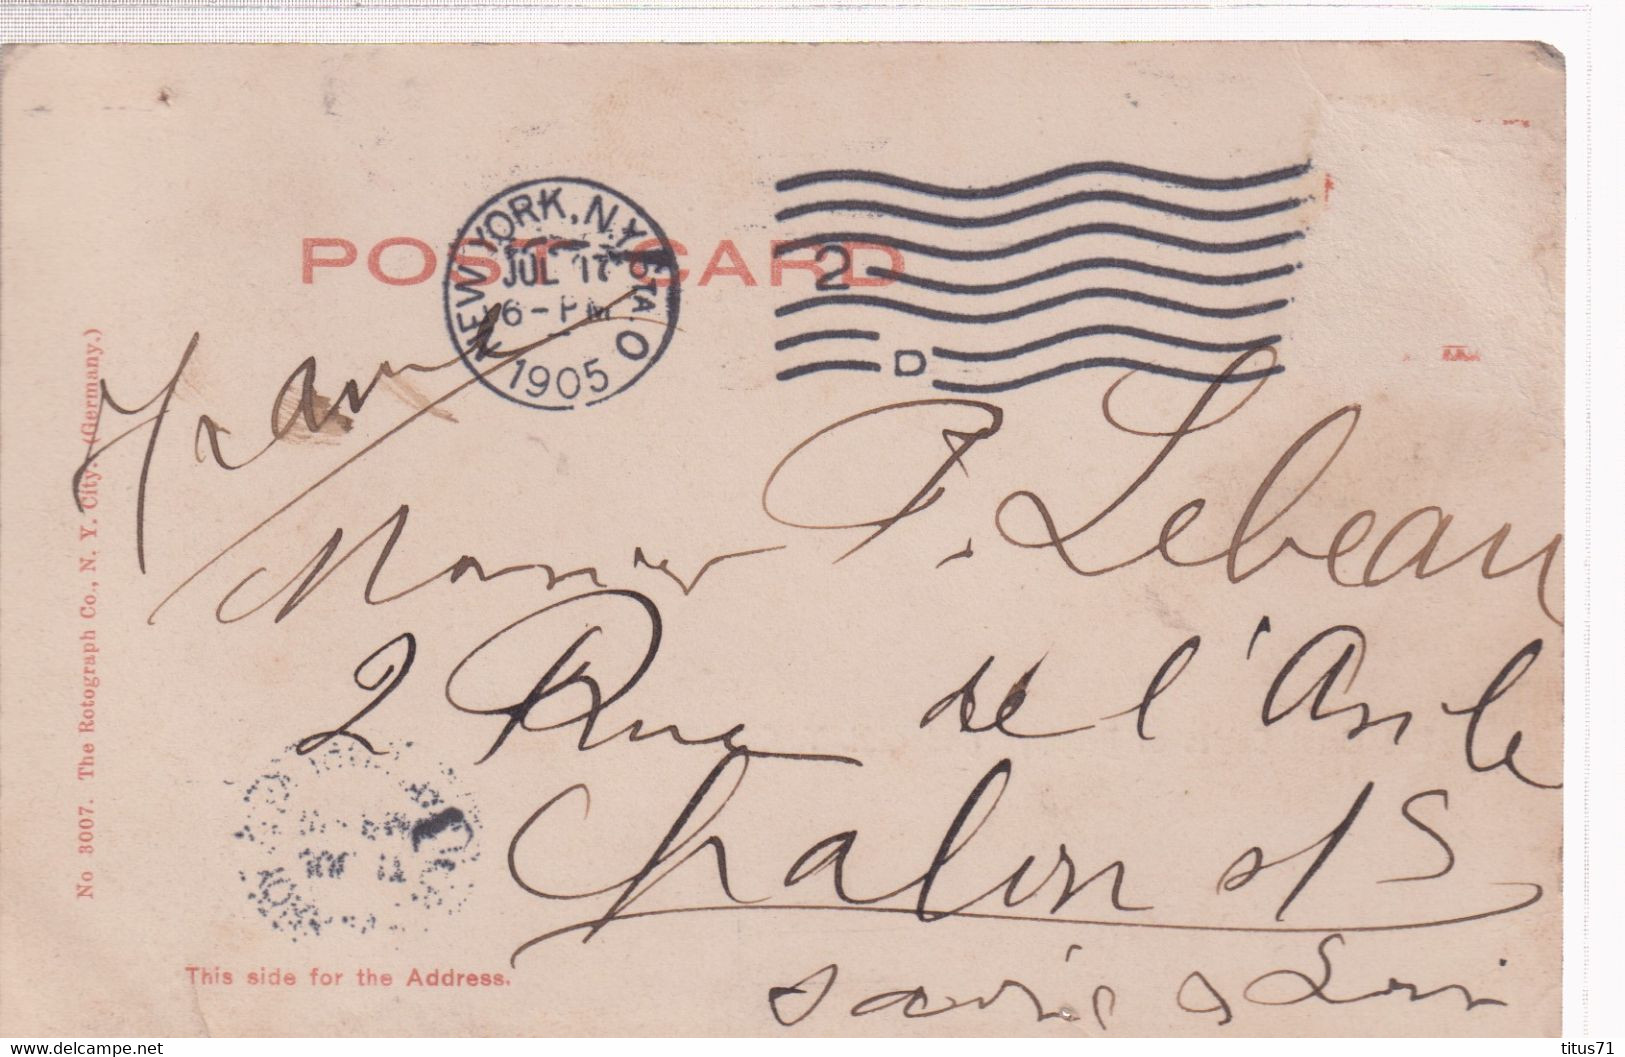 POST CARD
NEW YORK, N.Y. STA. O
JUL 17
6-PM
1905
2
D
No 3007. The Rotograph Co., N. Y. City. (Germany.)
France
Monsieur P. Lebeau
2 Rue de l'Asile
Chalon s/S
Saône & Loire
This side for the Address.
© delcampe.net
titus71